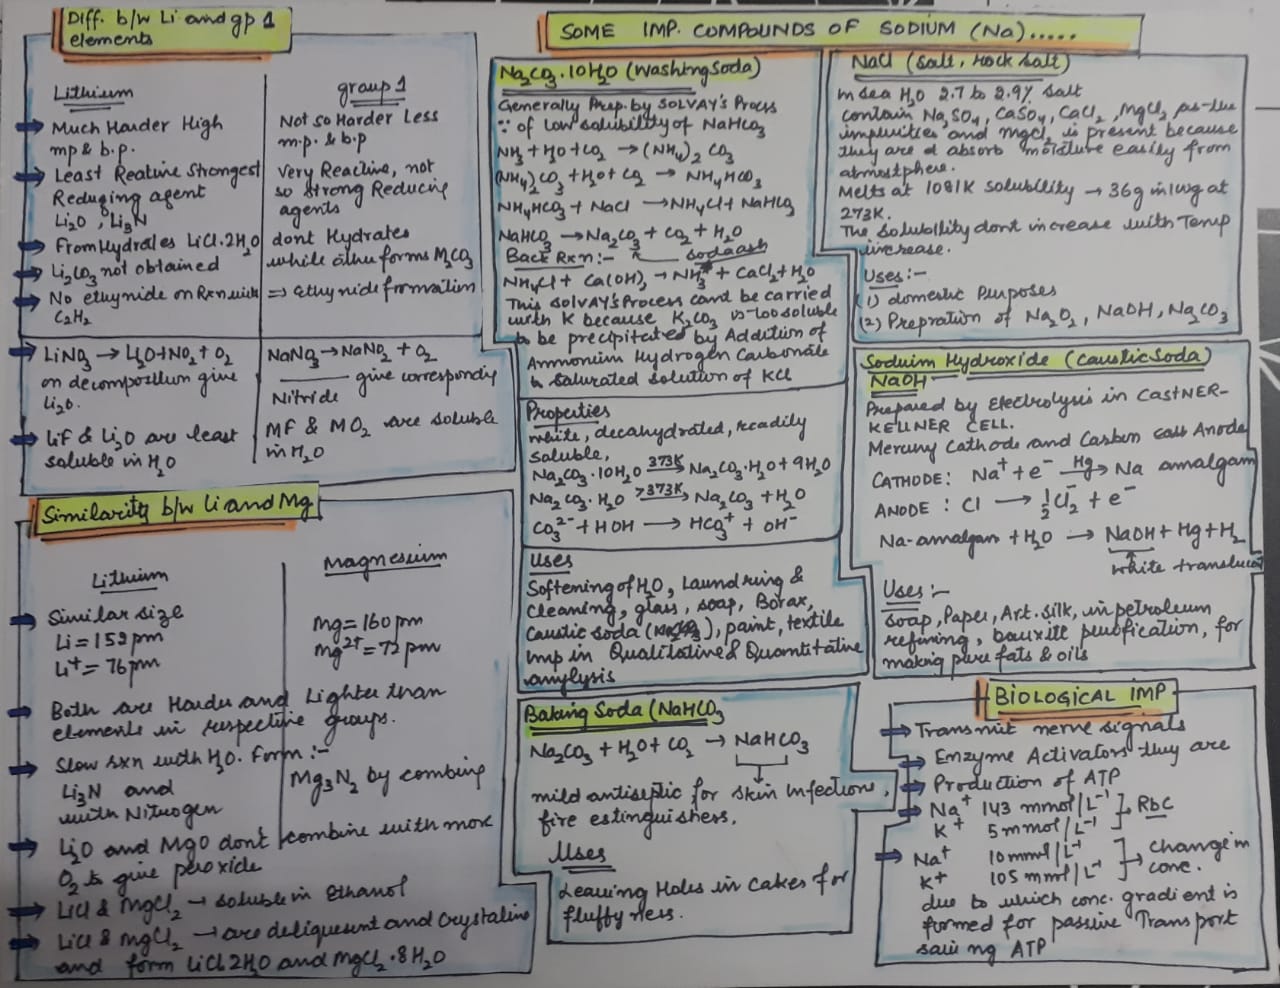 Diff. b/w Li and gp 1
elements
Lithium
group 1
Much Harder High
mp & b.p.
Not so Harder Less
m.p. & b.p
Least Reative Strongest
Reduging agent
Li₂O, Li₃N
Very Reactive, not
so strong Reducing
agents
From Hydrates LiCl·2H₂O
dont Hydrates
Li₂CO₃ not obtained
while other forms M₂CO₃
No ethynide on Rxn with
C₂H₂
⇒ ethynide formation
LiNO₃ → Li₂O+NO₂+O₂
on decomposition give
Li₂O.
NaNO₃→NaNO₂+O₂
give correspondy
Nitride
LiF & Li₂O are least
soluble in H₂O
MF & MO₂ are soluble
in H₂O
Similarity b/w Li and Mg
Lithium
Magnesium
Similar size
Li = 152 pm
Li⁺ = 76pm
Mg = 160 pm
Mg²⁺ = 72 pm
Both are Harder and Lighter than
elements in respective groups.
Slow rxn with H₂O. Form :-
Li₃N and
with Nitrogen
Mg₃N₂ by combine
Li₂O and MgO dont combine with more
O₂ to give peroxide
LiCl & MgCl₂ → soluble in Ethanol
LiCl & MgCl₂ → are deliquesent and Crystaline
and form LiCl·2H₂O and MgCl₂·8H₂O
SOME IMP. COMPOUNDS OF SODIUM (Na).....
Na₂CO₃·10H₂O (Washing Soda)
Generally Prep. by SOLVAY's Process
∵ of low solubility of NaHCO₃
NH₃ + H₂O + CO₂ → (NH₄)₂ CO₃
(NH₄)₂CO₃ + H₂O + CO₂ → NH₄HCO₃
NH₄HCO₃ + NaCl → NH₄Cl + NaHCO₃
NaHCO₃ → Na₂CO₃ + CO₂ + H₂O
Back Rxn:- sodaash
NH₄Cl + Ca(OH)₂ → NH₃ + CaCl₂ + H₂O
This SOLVAY's Process cant be carried
with K because K₂CO₃ is too soluble
to be precipitated by Addition of
Ammonium Hydrogen Carbonate
to saturated solution of KCl
Properties
White, decahydrated, readily
soluble,
Na₂CO₃·10H₂O 373K→ Na₂CO₃·H₂O + 9H₂O
Na₂CO₃·H₂O >373K→ Na₂CO₃ + H₂O
CO₃²⁻ + HOH → HCO₃⁺ + OH⁻
Uses
Softening of H₂O, Laundring &
Cleaning, glass, soap, Borax,
Caustic soda, paint, textile
imp in Qualitative & Quantitative
anylysis
Baking Soda (NaHCO₃
Na₂CO₃ + H₂O + CO₂ → NaHCO₃
mild antiseptic for skin Infections,
fire estinguishers.
Uses
Leaving Holes in Cakes for
fluffyness.
NaCl (Salt, Rock salt)
In sea H₂O 2.7 to 2.9% salt
contain Na₂SO₄, CaSO₄, CaCl₂, MgCl₂ as the
impurities and MgCl₂ is present because
they are absorb moisture easily from
atmostphere.
Melts at 1081K solubility → 36g in at
273K.
The solubility dont increase with Temp
increase.
Uses:-
(1) domestic Purposes
(2) Prepration of Na₂O₂, NaOH, Na₂CO₃
Soduim Hydroxide (Caustic Soda)
NaOH
Prepared by Electrolysis in CASTNER-
KELLNER CELL.
Mercury Cathode and Carbon Anode
CATHODE: Na⁺ + e⁻ Hg→ Na amalgam
ANODE : Cl → ½Cl₂⁻ + e⁻
Na-amalgam + H₂O → NaOH + Hg + H₂
white translucent
Uses :-
Soap, Paper, Art. silk, in petroleum
refining, bauxite purification, for
making pure fats & oils
BIOLOGICAL IMP
Transmit nerve signals
Enzyme Activators they are
Production of ATP
Na⁺ 143 mmol/L⁻¹
K⁺ 5 mmol/L⁻¹ → Rbc
Na⁺ 10 mmol/L⁻¹
K⁺ 105 mmol/L⁻¹ → change in
conc.
due to which conc. gradient is
formed for passive Transport
saving ATP